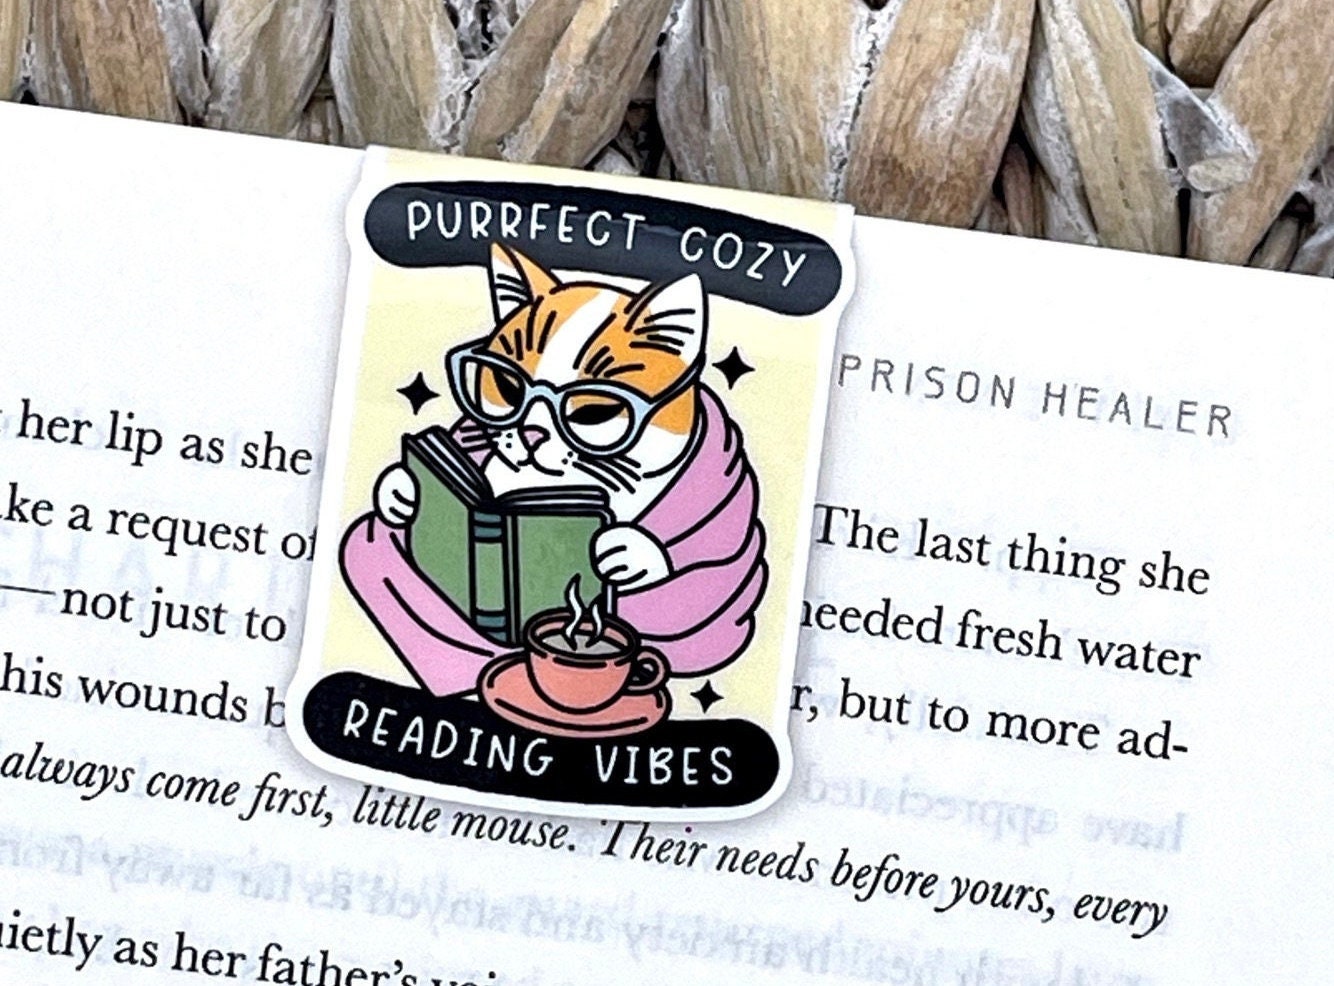 PURRFECT COZY
READING VIBES
PRISON HEALER
her lip as she
The last thing she
a request of
—not just to
needed fresh water
his wounds
but to more ad-
always come first, little mouse. Their needs before yours, every
as her father's